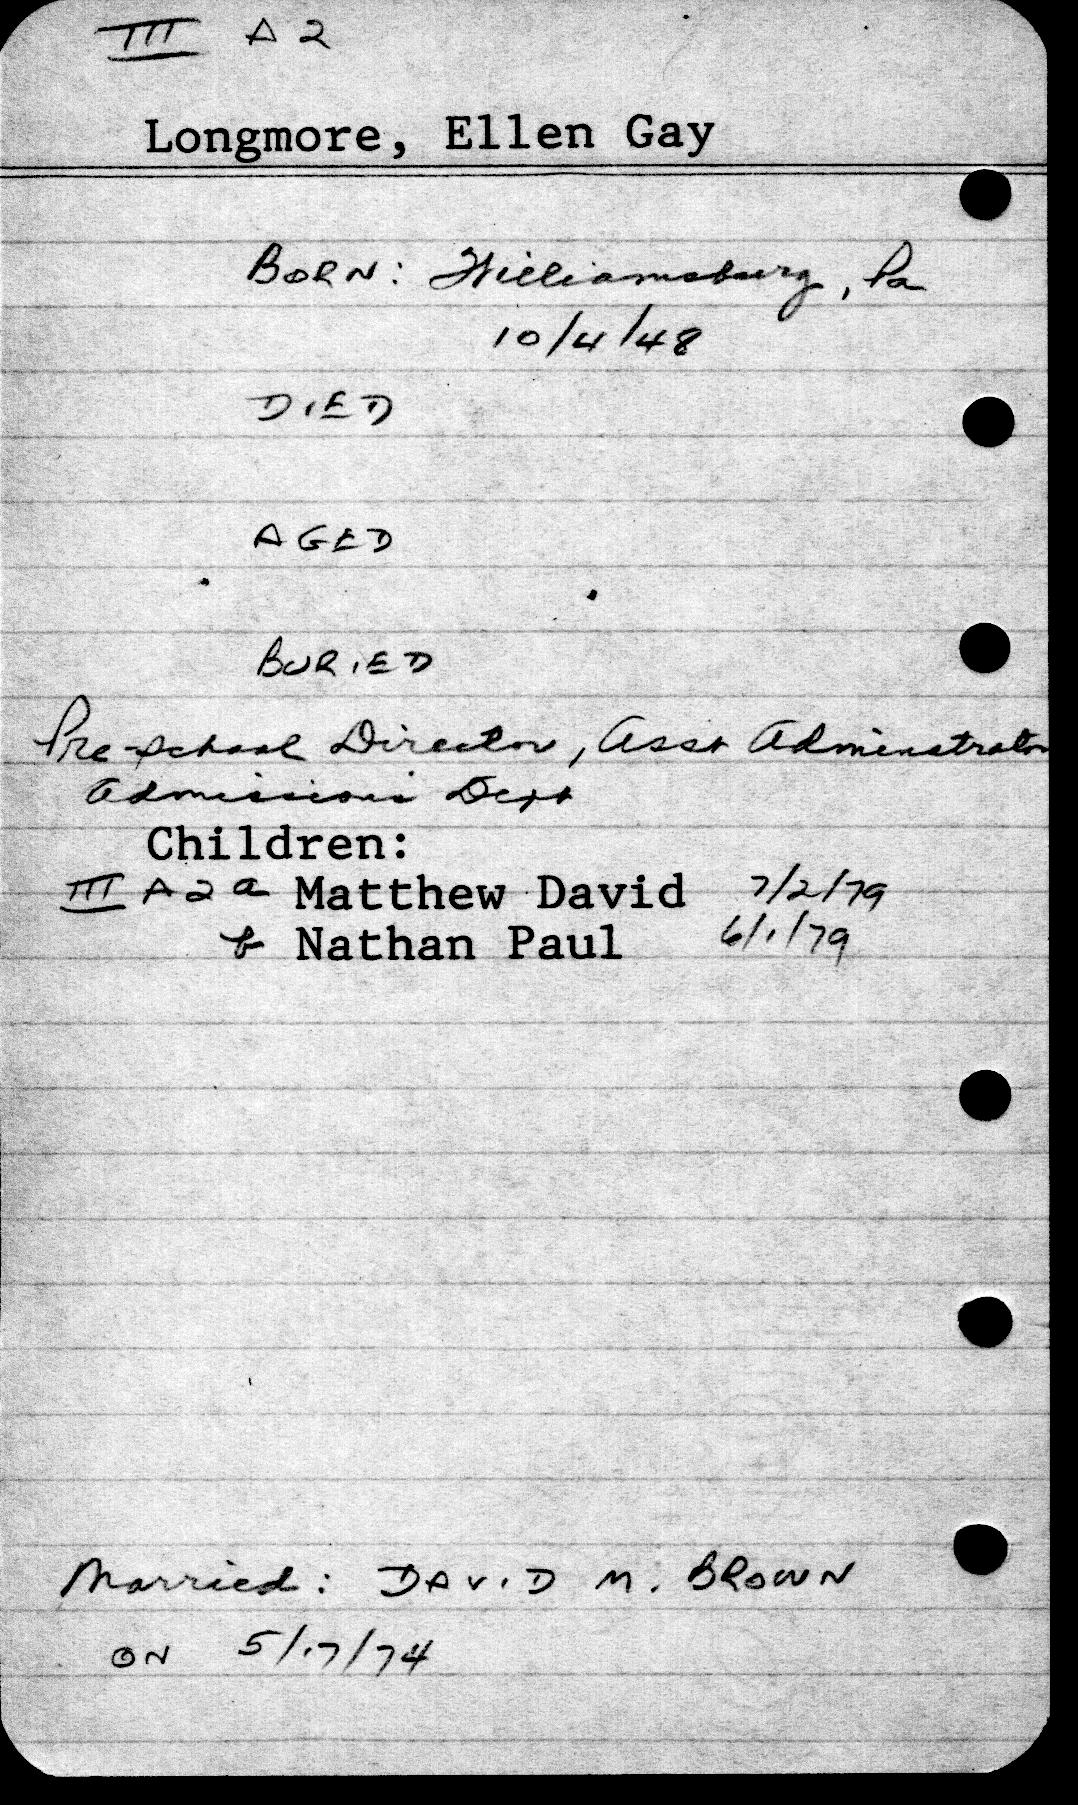 III A 2
Longmore, Ellen Gay
BORN: Williamsburg, Pa
10/4/48
DIED
AGED
BURIED
Pre-school Director, Asst Adminstrator
Admissions Dept
Children:
III A 2 a Matthew David 7/2/79
b Nathan Paul 6/1/79
Married: DAVID M. BROWN
ON 5/17/74